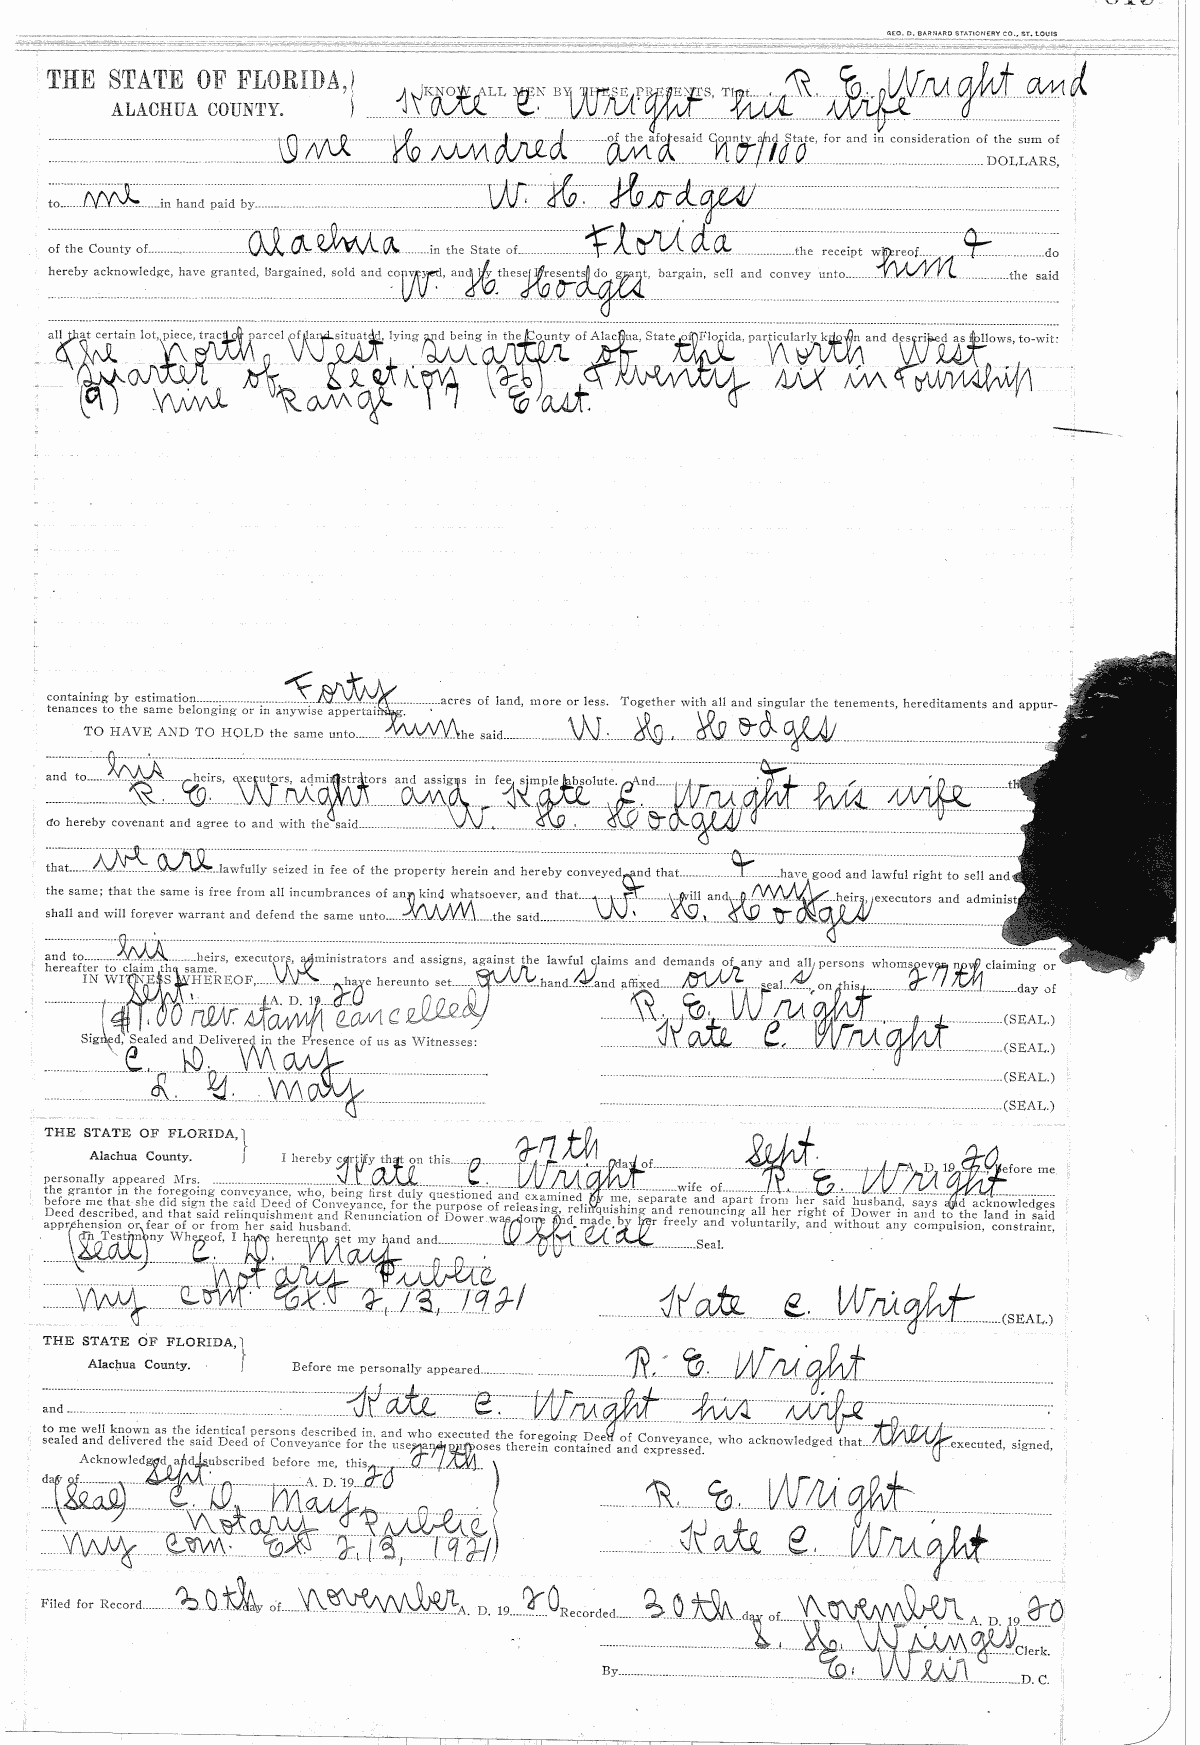 GEO. D. BARNARD STATIONERY CO., ST. LOUIS
THE STATE OF FLORIDA,
ALACHUA COUNTY.
KNOW ALL MEN BY THESE PRESENTS, That R. E. Wright and
Kate C. Wright his wife
of the aforesaid County and State, for and in consideration of the sum of
One Hundred and no/100 DOLLARS,
to me in hand paid by W. H. Hodges
of the County of Alachua in the State of Florida the receipt whereof I do
hereby acknowledge, have granted, bargained, sold and conveyed, and by these Presents do grant, bargain, sell and convey unto him the said
W. H. Hodges
all that certain lot, piece, tract or parcel of land situated, lying and being in the County of Alachua, State of Florida, particularly known and described as follows, to-wit:
The North West quarter of the North West
quarter of Section (26) Twenty six in Township
(9) nine Range 17 East.
containing by estimation Forty acres of land, more or less. Together with all and singular the tenements, hereditaments and appur-
tenances to the same belonging or in anywise appertaining.
TO HAVE AND TO HOLD the same unto him the said W. H. Hodges
and to his heirs, executors, administrators and assigns in fee simple absolute. And I
R. E. Wright and Kate C. Wright his wife
do hereby covenant and agree to and with the said W. H. Hodges
that we are lawfully seized in fee of the property herein and hereby conveyed, and that I have good and lawful right to sell and
the same; that the same is free from all incumbrances of any kind whatsoever, and that I will and my heirs, executors and administ
shall and will forever warrant and defend the same unto him the said W. H. Hodges
and to his heirs, executors, administrators and assigns, against the lawful claims and demands of any and all persons whomsoever now claiming or
hereafter to claim the same.
IN WITNESS WHEREOF, We have hereunto set our hand s and affixed our seal s, on this 27th day of
Sept. A. D. 19 20 R. E. Wright (SEAL.)
($1.00 rev. stamp cancelled) Kate C. Wright (SEAL.)
Signed, Sealed and Delivered in the Presence of us as Witnesses:
C. D. May (SEAL.)
L. G. May (SEAL.)
THE STATE OF FLORIDA,
Alachua County. I hereby certify that on this 27th day of Sept. A. D. 19 20 before me
personally appeared Mrs. Kate C. Wright wife of R. E. Wright
the grantor in the foregoing conveyance, who, being first duly questioned and examined by me, separate and apart from her said husband, says and acknowledges
before me that she did sign the said Deed of Conveyance, for the purpose of releasing, relinquishing and renouncing all her right of Dower in and to the land in said
Deed described, and that said relinquishment and Renunciation of Dower was done and made by her freely and voluntarily, and without any compulsion, constraint,
apprehension or fear of or from her said husband.
In Testimony Whereof, I have hereunto set my hand and Official Seal.
(Seal) C. D. May
Notary Public
My com. Ex. 2,13, 1921 Kate C. Wright (SEAL.)
THE STATE OF FLORIDA,
Alachua County. Before me personally appeared R. E. Wright
and Kate C. Wright his wife
to me well known as the identical persons described in, and who executed the foregoing Deed of Conveyance, who acknowledged that they executed, signed,
sealed and delivered the said Deed of Conveyance for the uses and purposes therein contained and expressed.
Acknowledged and subscribed before me, this 27th
day of Sept. A. D. 19 20
(Seal) C. D. May R. E. Wright
Notary Public
My com. Ex 2,13, 1921 Kate C. Wright
Filed for Record 30th day of November A. D. 19 20 Recorded 30th day of November A. D. 19 20
S. H. Wienges Clerk.
By E. Weir D. C.